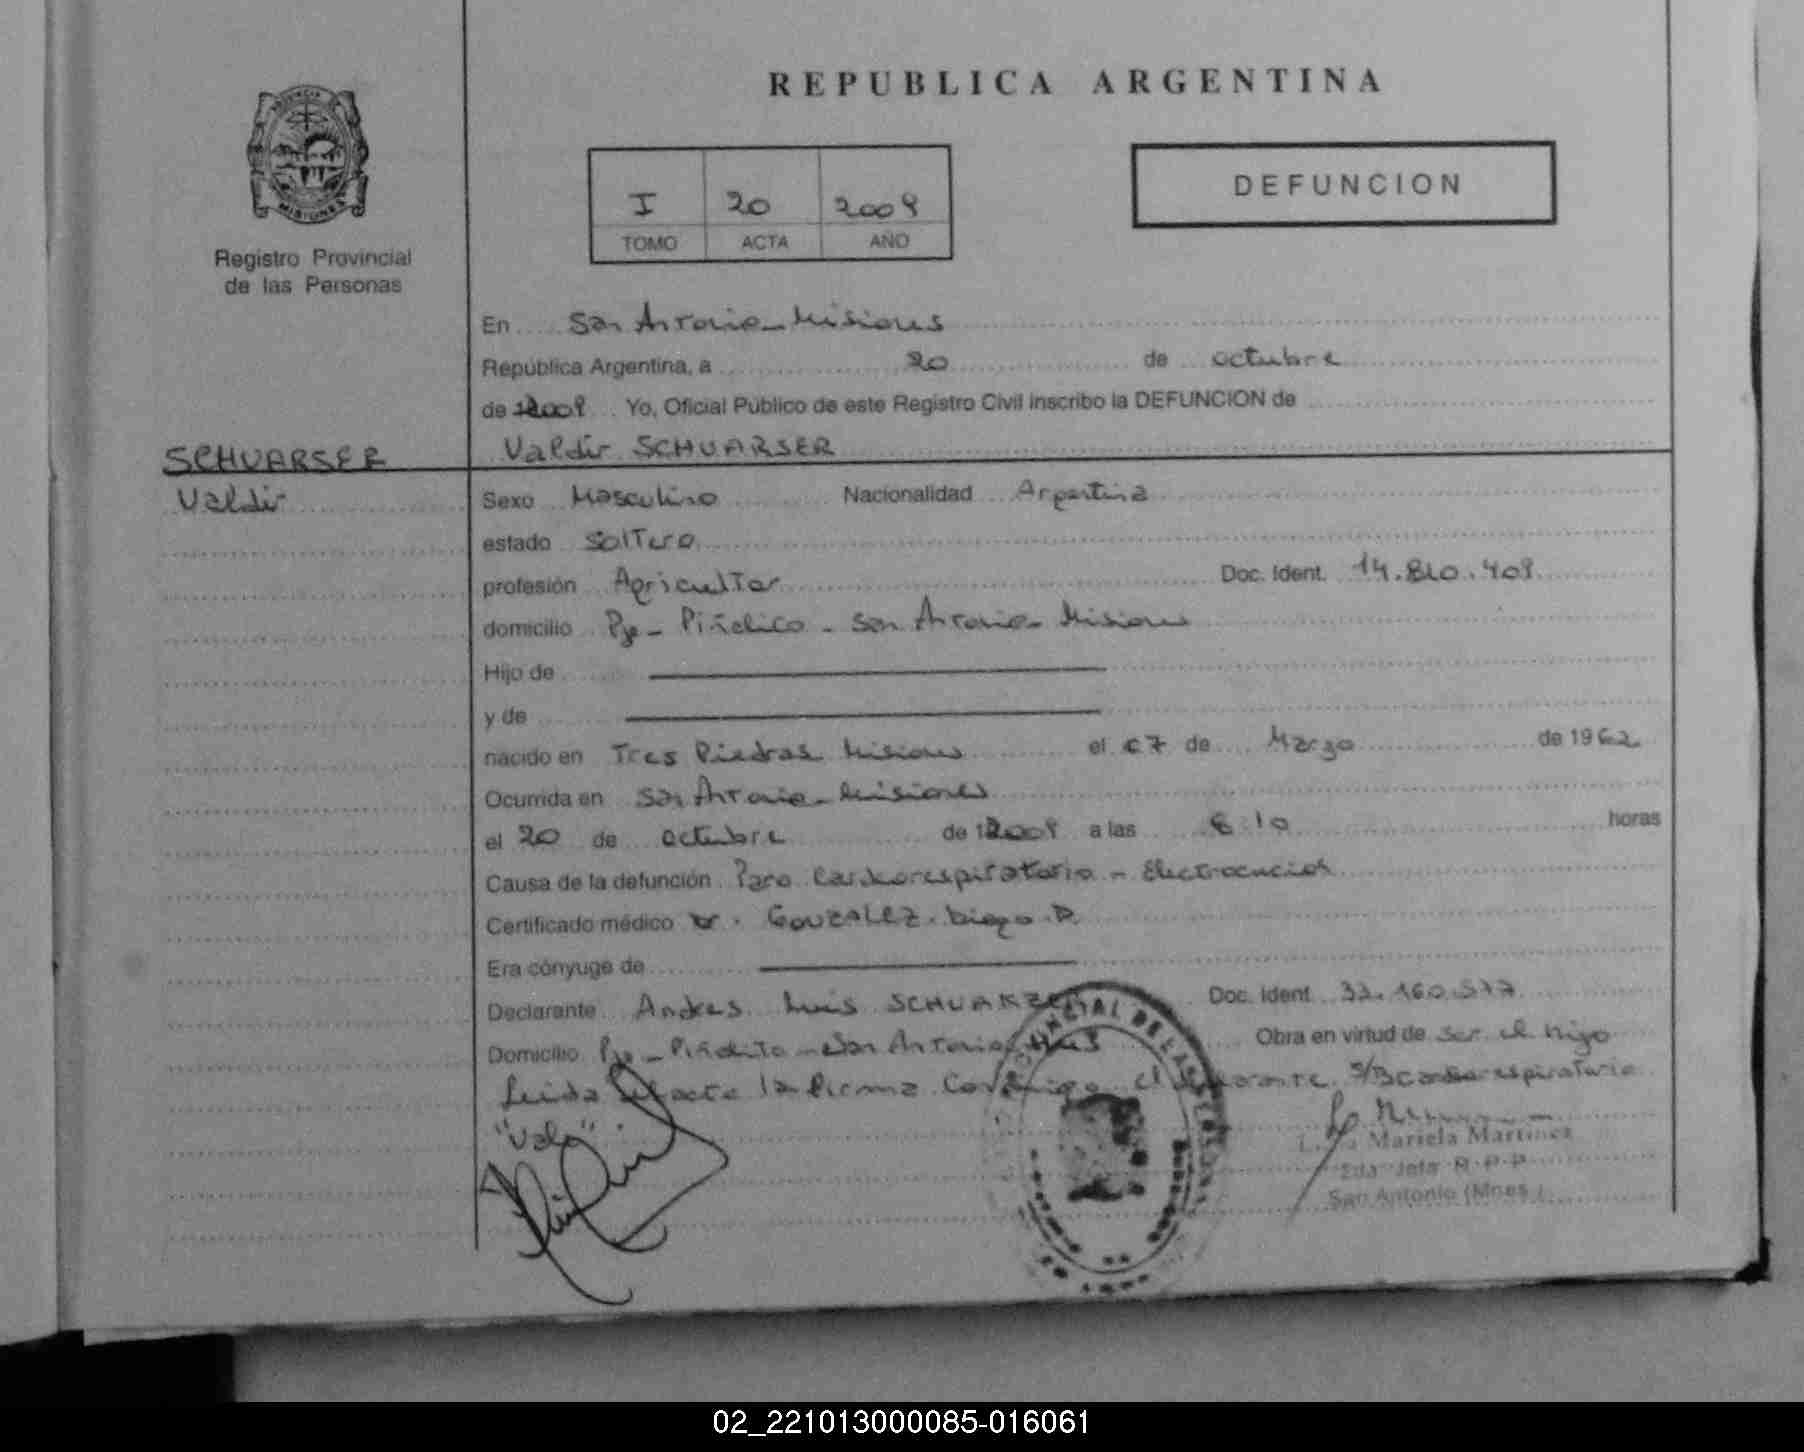 REPUBLICA ARGENTINA
PROVINCIA
MISIONES
Registro Provincial
de las Personas
I 20 2009
TOMO ACTA AÑO
DEFUNCION
En San Antonio - Misiones
República Argentina, a 20 de octubre
de 2009 Yo, Oficial Público de este Registro Civil inscribo la DEFUNCION de
Valdir SCHUARSER
SCHUARSER
Valdir
Sexo Masculino Nacionalidad Argentina
estado Soltero
profesión Agricultor Doc. Ident. 14.810.409
domicilio Pje - Piñalito - San Antonio - Misiones
Hijo de
y de
nacido en Tres Piedras Misiones el 07 de Marzo de 1962
Ocurrida en San Antonio - Misiones
el 20 de octubre de 2009 a las 8:10 horas
Causa de la defunción Paro Cardiorespiratorio - Electrocución
Certificado médico Dr. GONZALEZ. Diego. D.
Era cónyuge de
Declarante Andres Luis SCHUARZER Doc. Ident. 33.160.577
Domicilio Pje - Piñalito - San Antonio - Mnes Obra en virtud de ser el hijo
Leida el acta la firma Conmigo el declarante. S/B cardiorespiratorio.
"Vale".
Mariela Martinez
2da Jefa R.P.P
San Antonio (Mnes.)
02_221013000085-016061